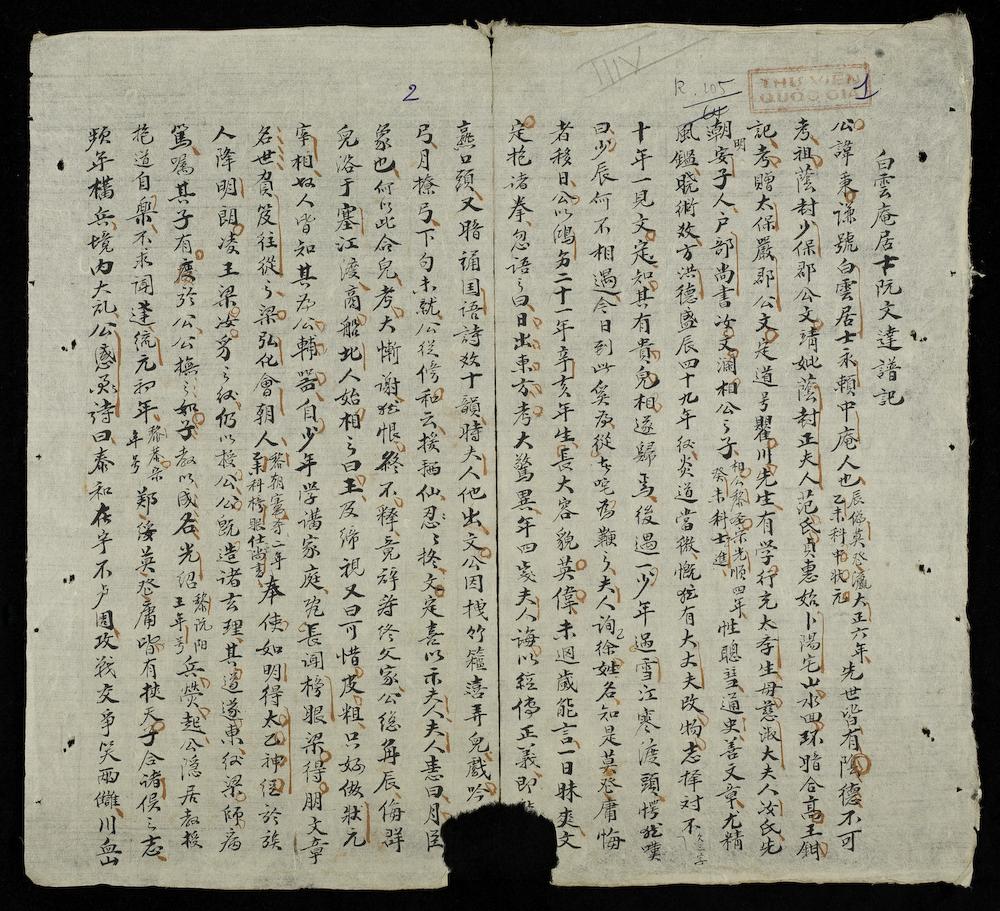 1
THƯ VIỆN
QUỐC GIA
R.105
白雲庵居士阮文達譜記
公諱秉謙號白雲居士永賴中庵人也辰偽莫登瀛大正六年乙未科中狀元先世皆有陰德不可
考祖蔭封少保郡公文靖妣蔭封正夫人范氏貞惠始卜陽宅山水四环暗合高王
記考贈太保嚴郡公文定道号先生有学行充太孝生母慈淑大夫人汝氏先
朝明安子人户部尚書汝文瀾相公之子初公黎圣宗光順四年癸未科士進性聰慧通史善文章尤精
風鑑曉術数方洪德盛辰四十九年後炎道當微慨然有大丈夫改物志擇对不
十年一見文定知其有貴兒相遂歸焉後過一少年過雪江寒渡頭愕然嘆
曰少辰何不相遇今日到此奚為從者咤為鞭之夫人詢徐姓名知是莫登庸悔
者移日公以鴻二十一年辛亥年生長大容貌英偉未週歲能言一日昧爽文
定抱诸拳忽語之曰日出東方考大驚異年四歲夫人誨以經傳正義即
2
口頭又暗誦国語詩数十韻時夫人他出文公因拽竹戲弄兒戲吟
弓月撩弓下句未就公從修和云援仙忍々捴文定喜以示夫人夫人恚曰月臣
象也何以此命兒考大慚謝然恨終不釋竟辞終久家公總角辰侮群
兒浴于塞江渡商船北人始相之曰王及諦視又曰可惜皮粗只好做狀元
宰相奴人皆知其為公輔器自少年学講家庭死長闻榜眼梁得朋文章
名世負笈往從之梁弘化會朝人黎朝憲宗二年科榜眼仕尚書奉使如明得太乙神經於族
人降明朗凌王梁汝之後仍以授公公既造诸玄理其道遂東後梁師病
篤嘱其子有慶於公公撫之如子教以成名光紹黎王年号兵赟起公隱居教授
抱道自楽不求闻達統元初年黎恭宗年号鄭綏莫登庸皆有挾天子令诸侯之志
頻年構兵境内大乱公感興詩曰泰和宇不固攻戰交争笑兩讎川血山